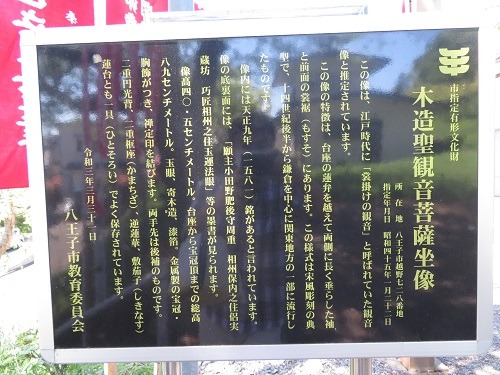 市指定有形文化財
木造聖観音菩薩坐像
所在地 八王子市越野七二八番地
指定年月日 昭和四十五年一月二十二日
この像は、江戸時代に「裳掛けの観音」と呼ばれていた観音
像と推定されています。
この像の特徴は、台座の蓮弁を越えて両側に長く垂らした袖
と前面の裳裾(もすそ)にあります。この様式は宋風彫刻の典
型で、十四世紀後半から鎌倉を中心に関東地方の一部に流行し
たものです。
像内には天正九年(一五八一)銘があると言われています。
像の底裏面には、「願主小田野肥後守周重 相州秩内之住侶実
蔵坊 巧匠相州之住玉運法眼」等の墨書が見られます。
像高四〇・五センチメートル。台座から宝冠頂までの総高
八九センチメートル。玉眼、寄木造、漆箔、金属製の宝冠・
胸飾がつき、禅定印を結びます。両手先は後補のものです。
二重円光背、二重框座(かまちざ)、逆蓮華、敷茄子(しきなす)
蓮台とも一具(ひとそろい)でよく保存されています。
令和三年三月三十一日
八王子市教育委員会